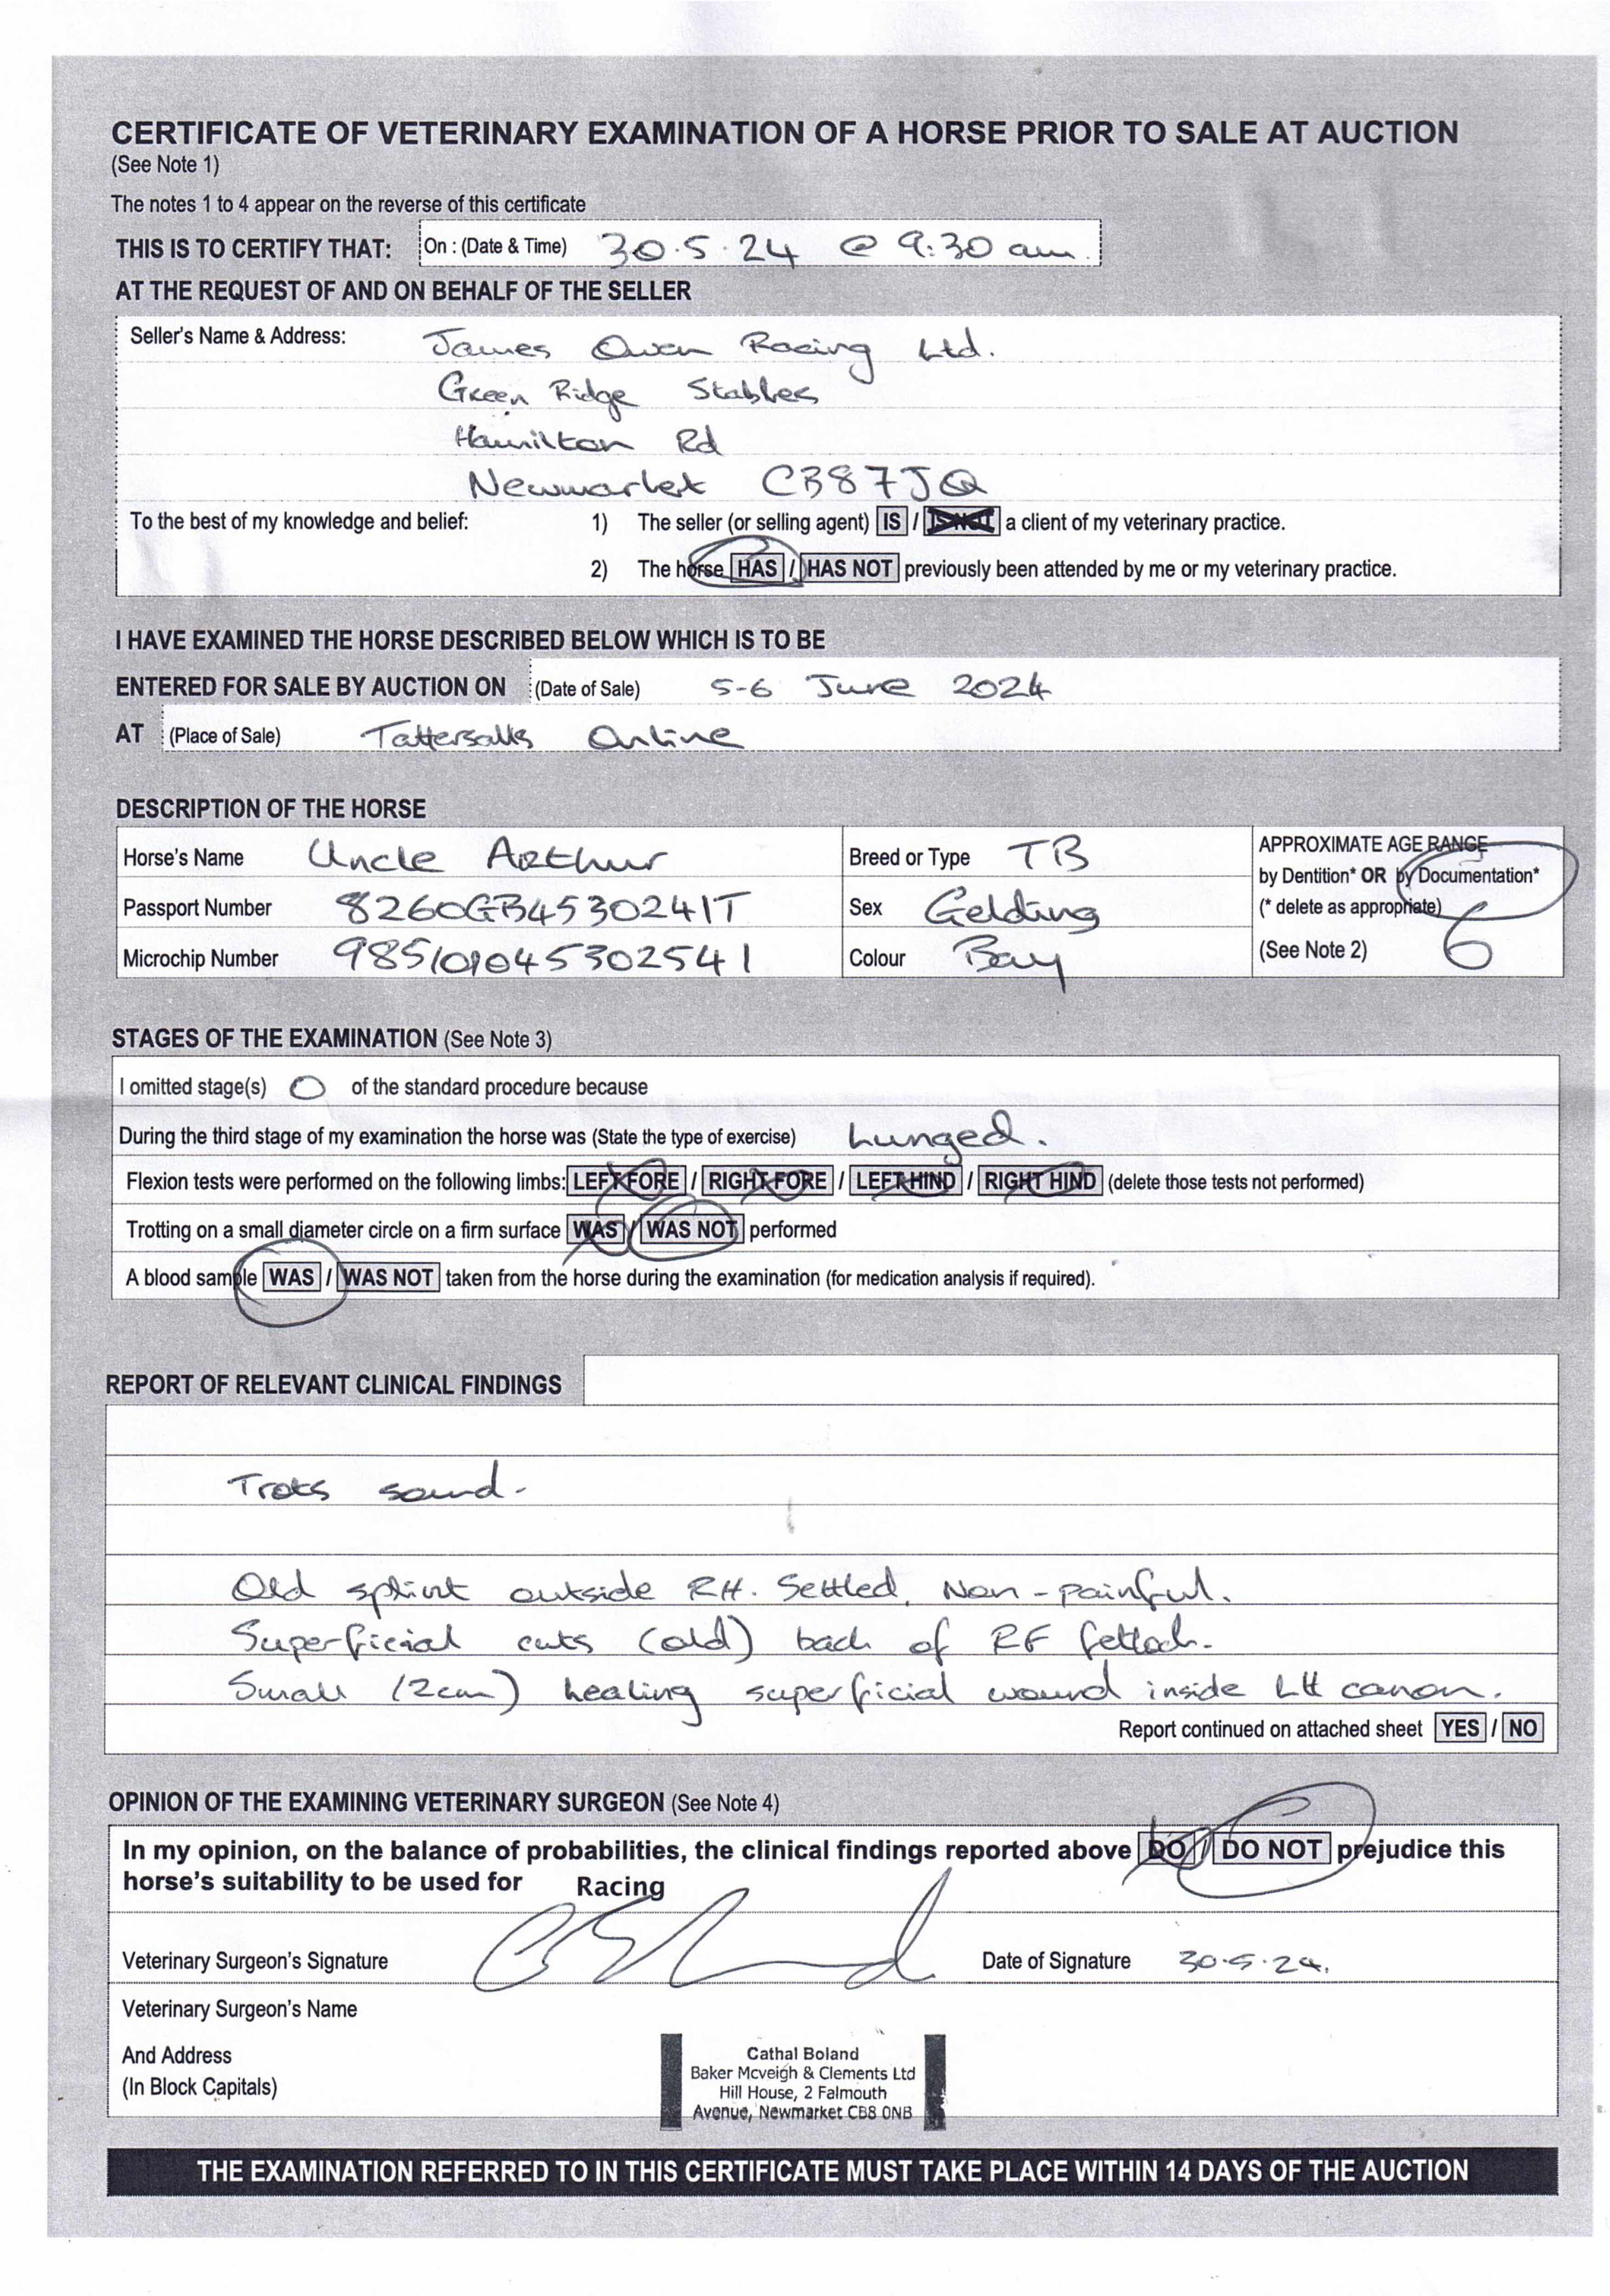 CERTIFICATE OF VETERINARY EXAMINATION OF A HORSE PRIOR TO SALE AT AUCTION
(See Note 1)
The notes 1 to 4 appear on the reverse of this certificate
THIS IS TO CERTIFY THAT: On : (Date & Time) 30.5.24 @ 9:30 am.
AT THE REQUEST OF AND ON BEHALF OF THE SELLER
Seller's Name & Address: James Owen Racing Ltd.
Green Ridge Stables
Hamilton Rd
Newmarket CB87JQ
To the best of my knowledge and belief: 1) The seller (or selling agent) IS / IS NOT a client of my veterinary practice.
2) The horse HAS / HAS NOT previously been attended by me or my veterinary practice.
I HAVE EXAMINED THE HORSE DESCRIBED BELOW WHICH IS TO BE
ENTERED FOR SALE BY AUCTION ON (Date of Sale) 5-6 June 2024
AT (Place of Sale) Tattersalls Online
DESCRIPTION OF THE HORSE
Horse's Name Uncle Arthur Breed or Type TB APPROXIMATE AGE RANGE
by Dentition* OR by Documentation*
Passport Number 8260GB4530241T Sex Gelding (* delete as appropriate)
Microchip Number 985101045302541 Colour Bay (See Note 2) 6
STAGES OF THE EXAMINATION (See Note 3)
I omitted stage(s) 0 of the standard procedure because
During the third stage of my examination the horse was (State the type of exercise) Lunged.
Flexion tests were performed on the following limbs: LEFT FORE / RIGHT FORE / LEFT HIND / RIGHT HIND (delete those tests not performed)
Trotting on a small diameter circle on a firm surface WAS / WAS NOT performed
A blood sample WAS / WAS NOT taken from the horse during the examination (for medication analysis if required).
REPORT OF RELEVANT CLINICAL FINDINGS
Trots sound.
Old splint outside RH. Settled, Non-painful.
Superficial cuts (old) back of RF fetlock.
Small (2cm) healing superficial wound inside LH canon.
Report continued on attached sheet YES / NO
OPINION OF THE EXAMINING VETERINARY SURGEON (See Note 4)
In my opinion, on the balance of probabilities, the clinical findings reported above DO / DO NOT prejudice this
horse's suitability to be used for Racing
Veterinary Surgeon's Signature Date of Signature 30.5.24.
Veterinary Surgeon's Name
And Address
(In Block Capitals)
Cathal Boland
Baker Mcveigh & Clements Ltd
Hill House, 2 Falmouth
Avenue, Newmarket CB8 0NB
THE EXAMINATION REFERRED TO IN THIS CERTIFICATE MUST TAKE PLACE WITHIN 14 DAYS OF THE AUCTION